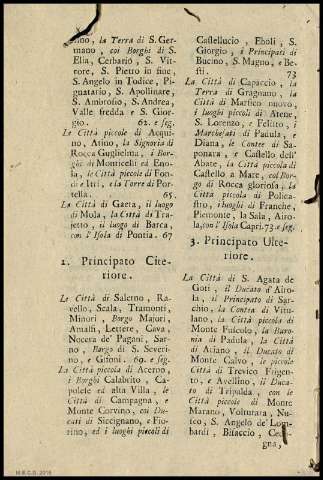 sino, la Terra di S. Ger-
mano, coi Borghi di S.
Elia, Cerbario, S. Vit-
tore, S. Pietro in fine,
S. Angelo in Todice, Pi-
gnatario, S. Apollinare,
S. Ambrosio, S. Andrea,
Valle fredda e S. Gior-
gio. 62. e seg.
Le Città piccole di Acqui-
no, Atino, la Signoria di
Rocca Guglielma, i Bor-
ghi di Monticelli ed Eno-
la, le Città piccole di Fon-
di e Itri, e la Torre di Por-
tella. 65.
La Città di Gaeta, il luogo
di Mola, la Città di Tra-
jetto, il luogo di Barca,
con l'Isola di Pontia. 67
2. Principato Cite-
riore.
Le Città di Salerno, Ra-
vello, Scala, Tramonti,
Minori, Borgo Majori,
Amalfi, Lettere, Cava,
Nocera de' Pagani, Sar-
no, Borgo di S. Severi-
no, e Gifoni. 69. e seg.
La Città piccola di Acerno,
i Borghi Calabrito, Ca-
polele ed alta Villa, le
Città di Campagna, e
Monte Corvino, coi Du-
cati di Siccignano, e Fio-
rino, ed i luoghi piccoli di
Castellucio, Eboli, S.
Giorgio, i Principati di
Bucino, S. Magno, e Be-
sti. 73
La Città di Capaccio, la
Terra di Gragnano, la
Città di Marsico nuovo,
i luoghi piccoli di Atene,
S. Lorenzo, e Felitto, i
Marchesati di Padula, e
Diana, le Contee di Sa-
ponara, e Castello dell'
Abate, la Città piccola di
Castello a Mare, col Bor-
go di Rocca gloriosa, la
Città piccola di Polica-
stro, i luoghi di Franche,
Piemonte, la Sala, Airo-
la, con l'Isola Capri. 73. e seg.
3. Principato Ulte-
riore.
La Città di S. Agata de
Goti, il Ducato d'Airo-
la, il Principato di Sar-
chino, la Contea di Vitu-
lano, la Città piccola di
Monte Fuscolo, la Baro-
nia di Padula, la Città
di Ariano, il Ducato di
Monte Calvo, le piccole
Città di Trevico Frigen-
to, e Avellino, il Duca-
to di Tripalda, con le
Città piccole di Monte
Marano, Volturara, Nu-
sco, S. Angelo de' Lom-
bardi, Bisaccio, Cedo-
gna,
M.E.C.D. 2016